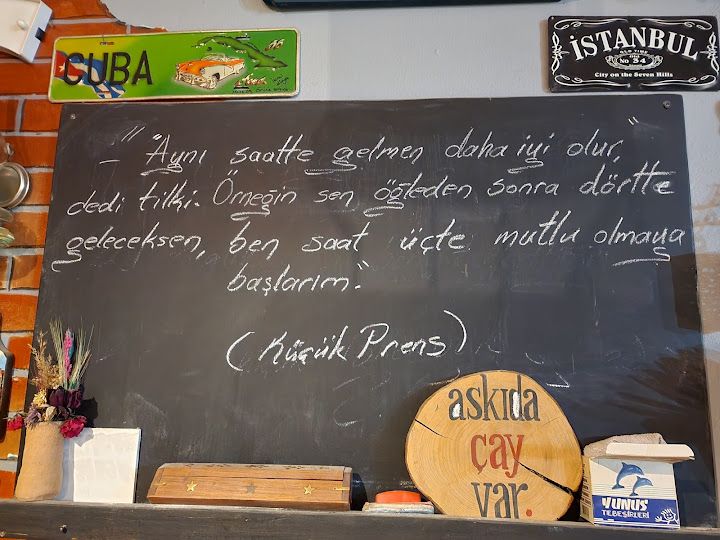 CUBA
İSTANBUL
OLD TIME
No 34
City on the Seven Hills
_ " Aynı saatte gelmen daha iyi olur, "
dedi tilki. Örneğin sen öğleden sonra dörtte
geleceksen, ben saat üçte mutlu olmaya
başlarım."
(Küçük Prens)
askıda
çay
var.
YUNUS
TEBEŞİRLERİ